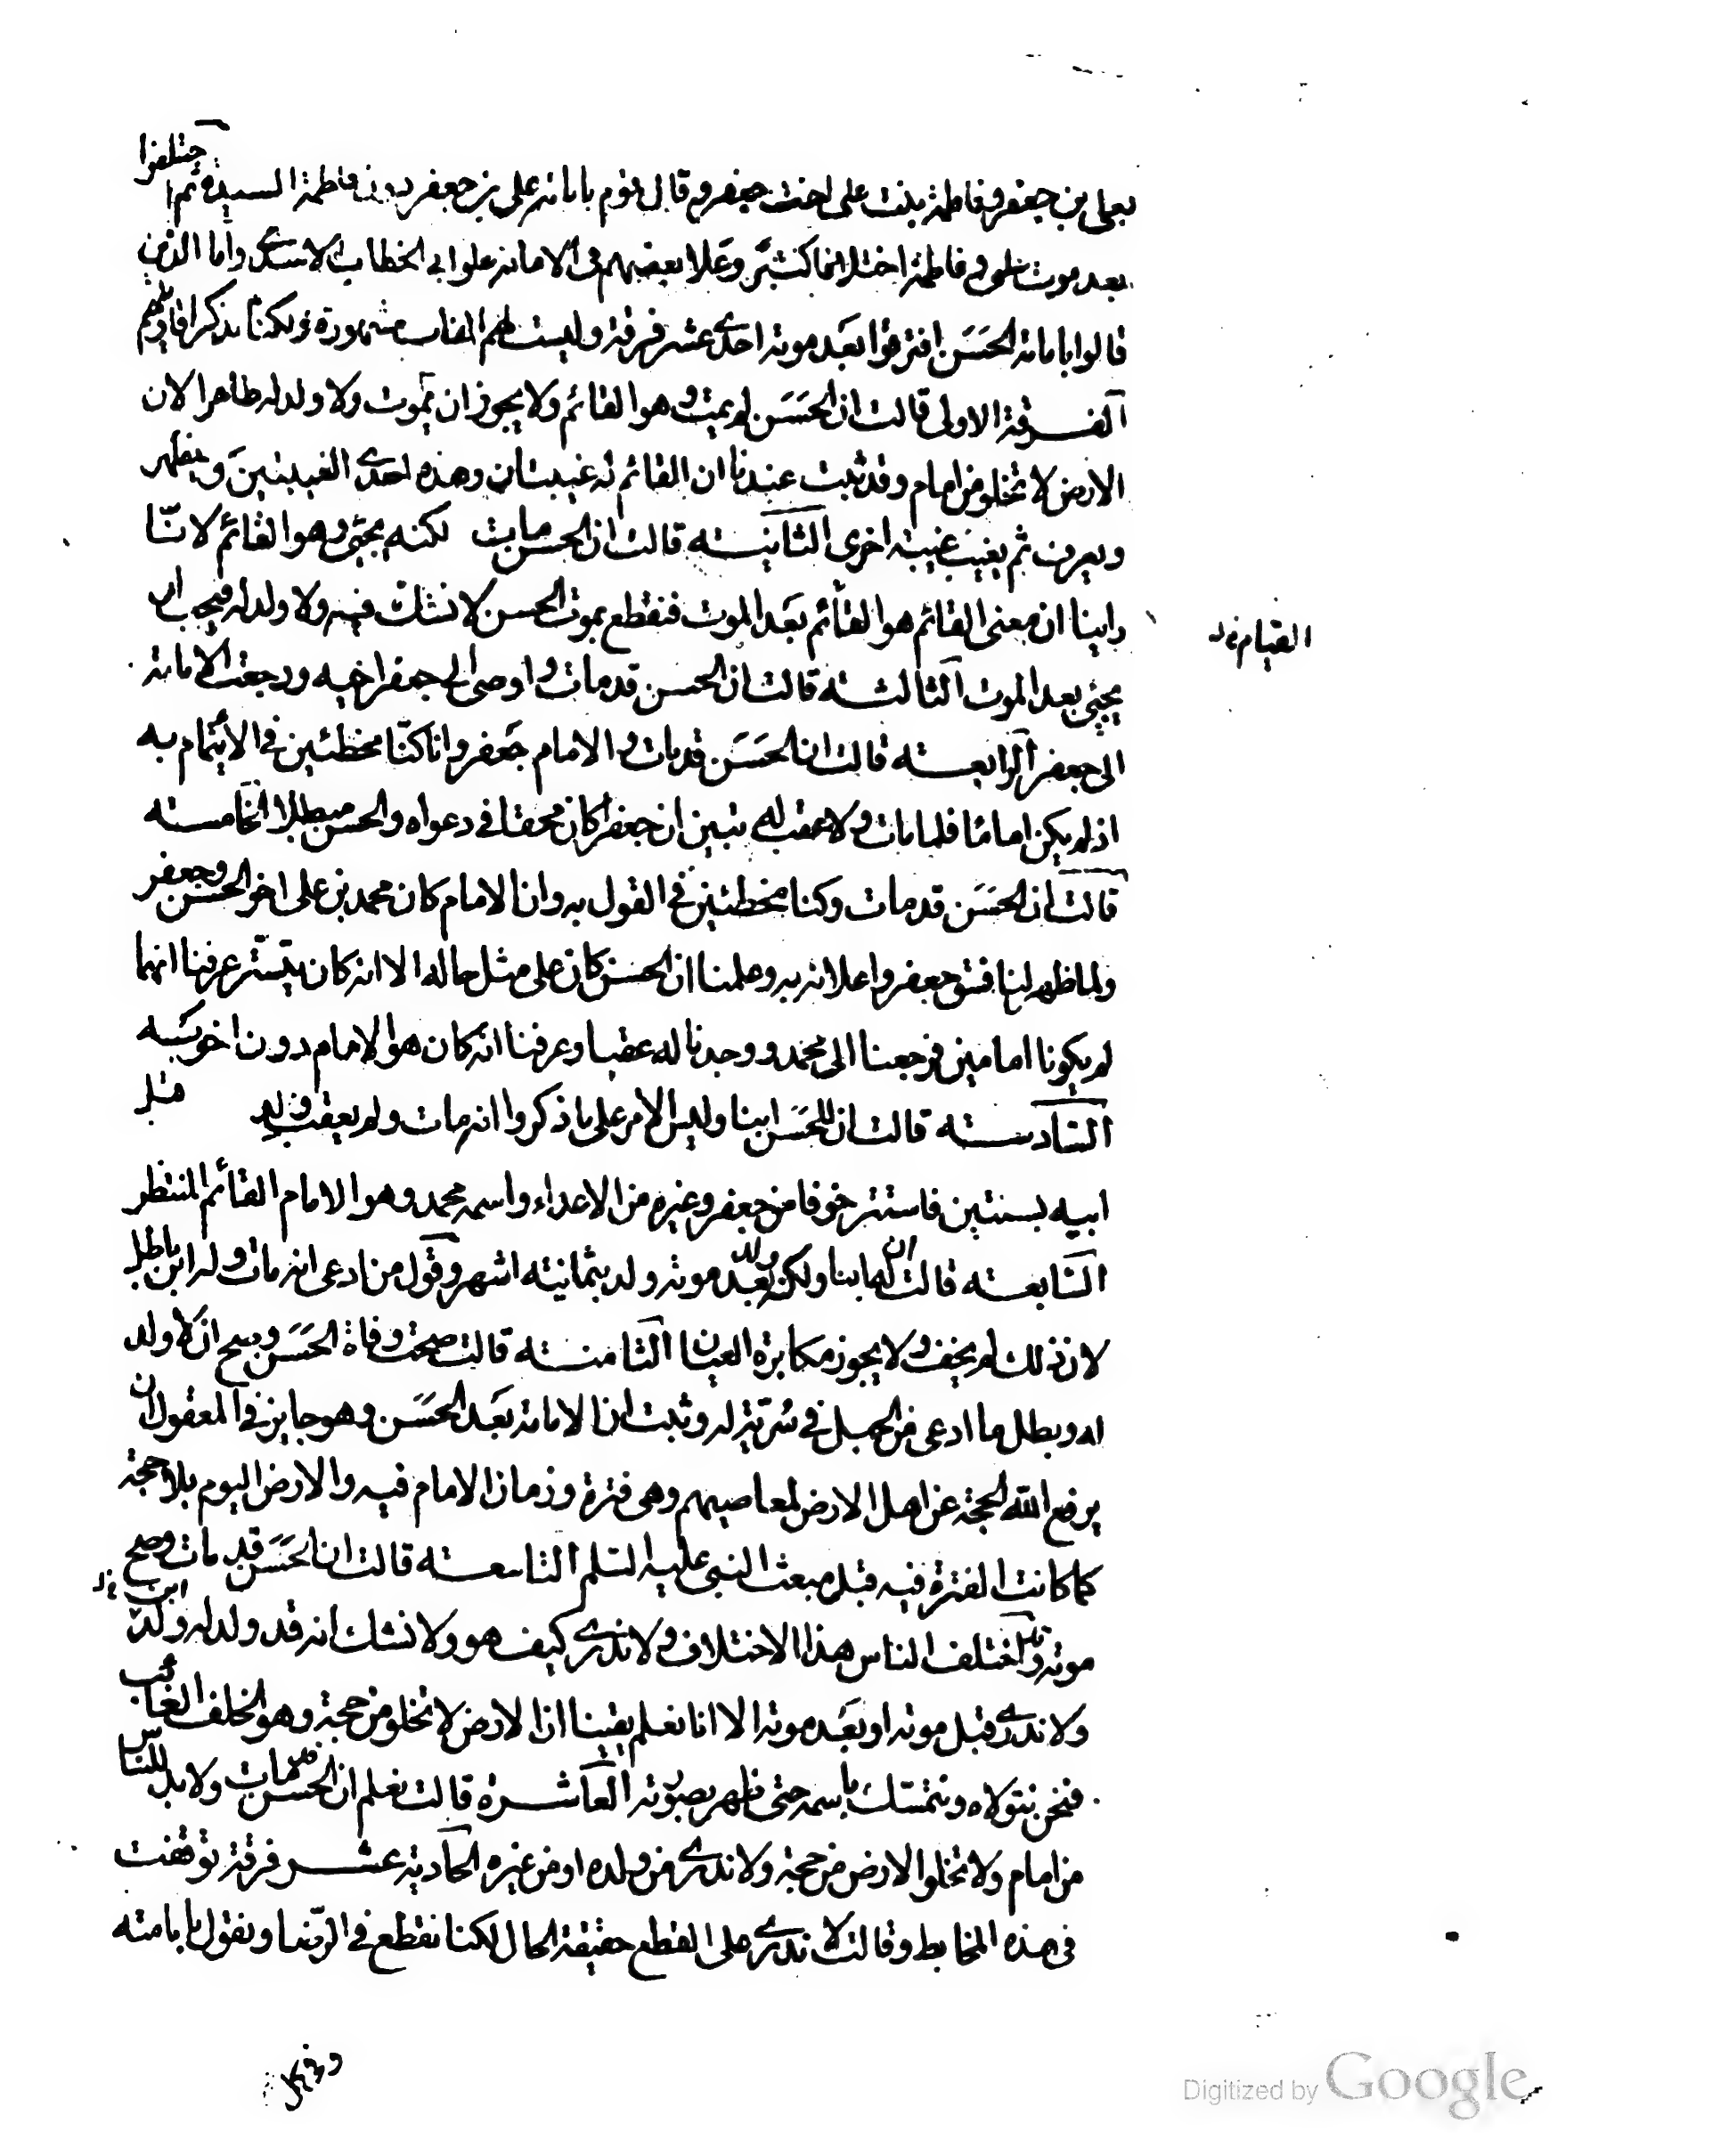 بعلي بن جعفر وفاطمة بنت علي اخت جعفر وقال قوم بامامة علي بن جعفر دون فاطمة السيدة ثم اختلفوا
بعد موت علي وفاطمة اختلافا كثيرا وغلا بعضهم في الامامة غلو ابي الخطاب الاسدي واما الذين
قالوا بامامة الحسن افترقوا بعد موته احدى عشر فرقة وليست لهم القاب مشهورة ولكنا نذكر اقاويلهم
الفرقة الاولى قالت ان الحسن لم يمت وهو القائم ولا يجوز ان يموت ولا ولد له ظاهرا لان
الارض لا تخلو من امام وقد ثبت عندنا ان القائم له غيبتان وهذه احدى الغيبتين وسيظهر
ويعرف ثم يغيب غيبة اخرى الثانية قالت ان الحسن مات لكنه يجئ وهو القائم لانا
راينا ان معنى القائم هو القائم بعد الموت فنقطع بموت الحسن لا نشك فيه ولا ولد له فيجب ان
القيام
يجئ بعد الموت الثالثة قالت ان الحسن قد مات واوصى الى جعفر اخيه ورجعت الامامة
الى جعفر الرابعة قالت ان الحسن قد مات والامام جعفر وانا كنا مخطئين في الايتمام به
اذ لم يكن اماما فلما مات ولا عقب له تبين ان جعفرا كان محقا في دعواه والحسن مبطلا الخامسة
قالت ان الحسن قد مات وكنا مخطئين في القول به وان الامام كان محمد بن علي اخو الحسن وجعفر
ولما ظهر لنا فسق جعفر واعلانه به وعلمنا ان الحسن كان على مثل حاله الا انه كان يتستر عرفنا انهما
لم يكونا امامين فرجعنا الى محمد ووجدنا له عقبا وعرفنا انه كان هو الامام دون اخويه
السادسة قالت ان للحسن ابنا وليس الامر على ما ذكروا انه مات ولم يعقب ولد قبل
ابيه بسنتين فاستتر خوفا من جعفر وغيره من الاعداء واسمه محمد وهو الامام القائم المنتظر
السابعة قالت ان له ابنا ولكنه ولد بعد موته ولد بثمانية اشهر وقول من ادعى انه مات وله ابن باطل
لان ذلك لم يخف ولا يجوز مكابرة العيان الثامنة قالت صحت وفاة الحسن وصح ان لا ولد
له وبطل ما ادعى من الحبل في سرية له وثبت ان لا امامة بعد الحسن وهو جايز في المعقول ان
يرفع الله الحجة عن اهل الارض لمعاصيهم وهي فترة وزمان لا امام فيه والارض اليوم بلا حجة
كما كانت الفترة فيه قبل مبعث النبي عليه السلم التاسعة قالت ان الحسن قد مات وصح
موته وقد اختلف الناس هذا الاختلاف ولا ندري كيف هو ولا نشك انه قد ولد له ولد ابن
ولا ندري قبل موته او بعد موته الا انا نعلم يقينا ان الارض لا تخلو من حجة وهو الخلف الغائب
فنحن نتولاه ونتمسك باسمه حتى يظهر بصورته العاشرة قالت نعلم ان الحسن قد مات ولا بد للناس
من امام ولا تخلوا الارض من حجة ولا ندري من ولده او من غيره الحادية عشر فرقة توقفت
في هذه المخابط وقالت لا ندري على القطع حقيقة الحال لكنا نقطع في الرضا ونقول بامامته
وفي كل
Digitized by Google